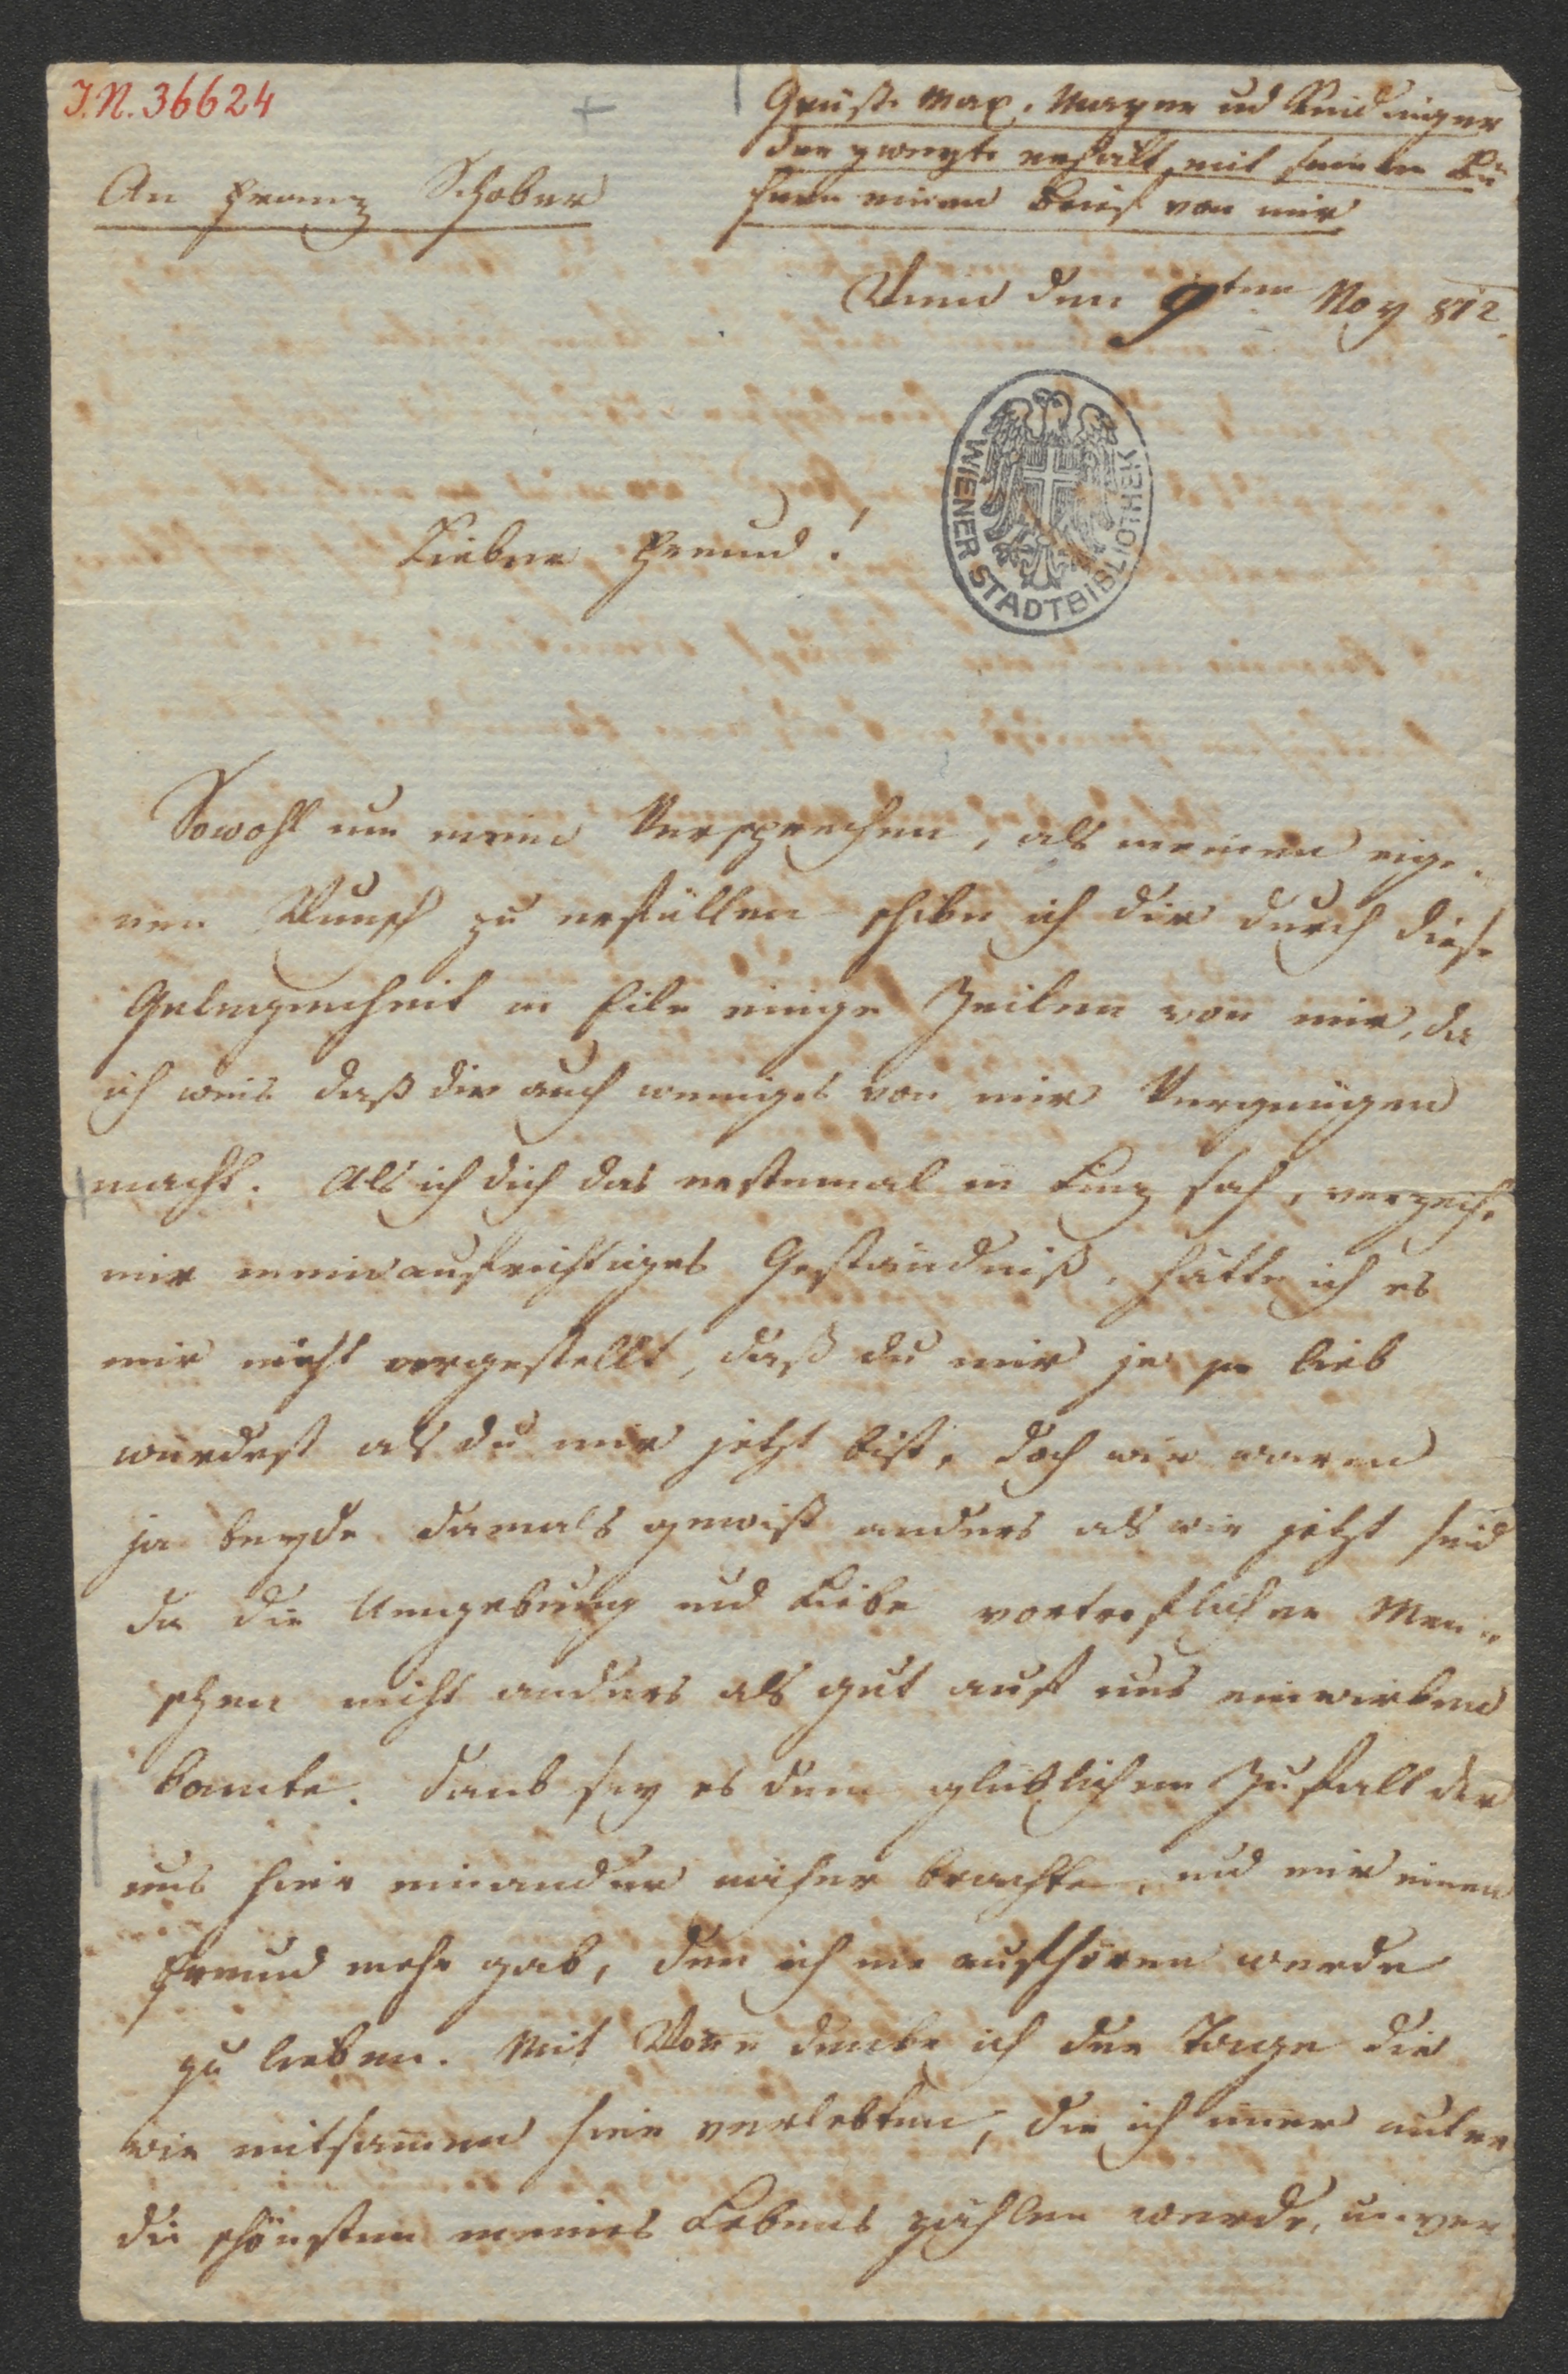 J.N. 36624
Grüsse Max. Mayer und Kreidinger
der zweyte erhält mit seinen Bü-
chern einen Brief von mir
An Franz Schober
Wien den 9ten May 812.
WIENER STADTBIBLIOTHEK
Lieber Freund!
Sowohl um mein Versprechen, als meinen eige-
nen Wunsch zu erfüllen schike ich dir durch diese
Gelegenheit in Eile einige Zeilen von mir, da
ich weis daß dir auch weniges von mir Vergnügen
macht. Als ich dich das erstemal in Linz sah, verzeihe
mir mein aufrichtiges Geständniß, hätte ich es
mir nicht vorgestellt, daß du mir je so lieb
würdest als du mir jetzt bist, doch wir waren
ja beyde damals gewiß anders als wir jetzt sind
da die Umgebung und Liebe vortreflicher Men-
schen nicht anders als gut auf uns einwirken
konnte. Dank sey es dem glüklichen Zufall der
uns hier einander näher brachte, und mir einen
Freund mehr gab, den ich nie aufhören werde
zu lieben. Mit Wonne denke ich der Tage die
wir mitsamen hier verlebten, die ich immer unter
die schönsten meines Lebens zählen werde, unver